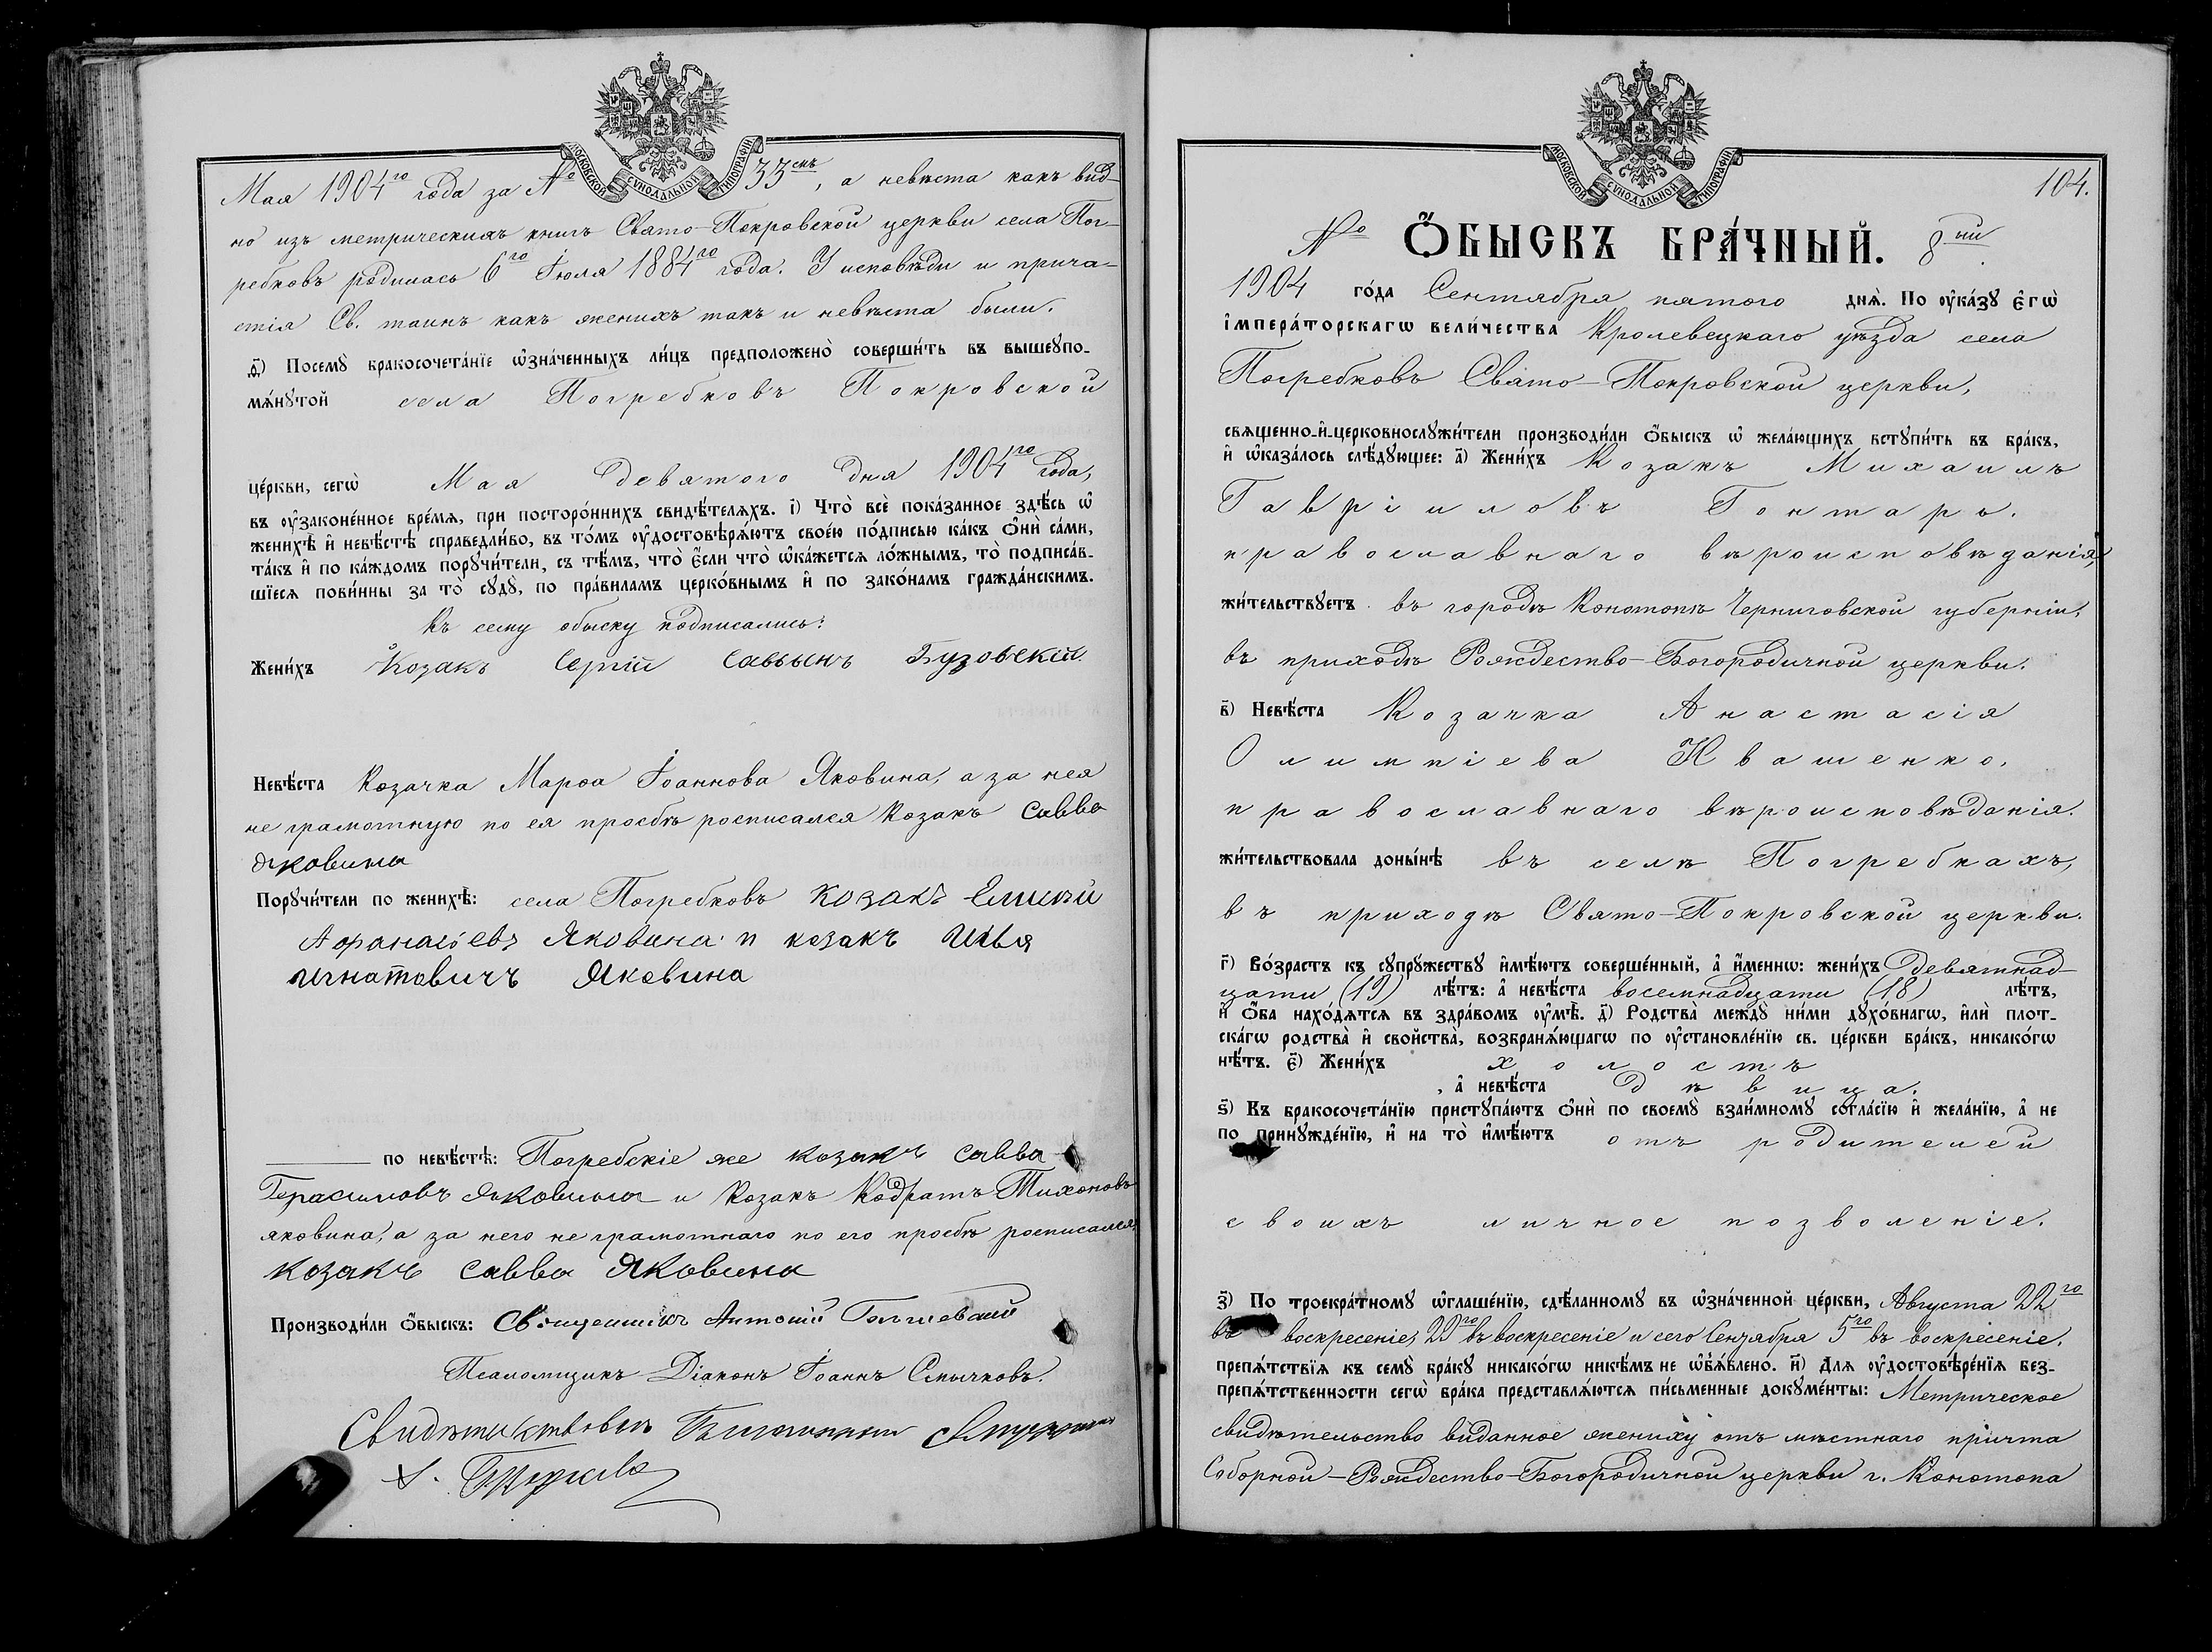 МОСКОВСКОЙ СѴНОДАЛЬНОЙ ТИПОГРАФІИ
Мая 1904го года за № 33емъ, а невѣста какъ вид-
но изъ метрическихъ книгъ Свято-Покровской церкви села Пог-
ребковъ родилась 6го Іюля 1884го года. У исповѣди и прича-
стія Св. таинъ какъ женихъ такъ и невѣста были.
д҃) Посемꙋ̀ бракосочета́нїе ѡ҆зна́ченныхъ ли́цъ предположено̀ соверши́ть въ вышеꙋпо-
мѧ́нꙋтой села Погребковъ Покровской
це́ркви, сегѡ̀ Мая девятого дня 1904го года,
въ ᲂу҆законе́нное вре́мѧ, при посторо́ннихъ свидѣ́телѧхъ. і҃) Что̀ всѐ пока́занное здѣ́сь ѡ҆
женихѣ̀ и҆ невѣ́стѣ справедли́во, въ то́мъ ᲂу҆достовѣрѧ́ютъ свое́ю по́дписью ка́къ ѻ҆нѝ са́ми,
та́къ и҆ по ка́ждомъ порꙋчи́тели, съ тѣ́мъ, что̀ є҆́сли что̀ ѡ҆ка́жетсѧ ло́жнымъ, то̀ подписа́в-
шїесѧ пови́нны за то̀ сꙋдꙋ̀, по пра́виламъ церко́внымъ и҆ по зако́намъ гражда́нскимъ.
Къ сему обыску подписались:
Жени́хъ Козакъ Сергій Саввынъ Бузовскій.
Невѣ́ста Козачка Марѳа Іоаннова Яковина, а за нея
не грамотную по ея просьбѣ росписался Козакъ Савва
Яковина
Порꙋчи́тели по женихѣ̀: села Погребковъ козакъ Елисѣй
Афанасіевъ Яковина и козакъ Илья
Игнатовичъ Яковина
по невѣ́стѣ: Погребскіе же козакъ Савва
Герасимовъ Яковина и Козакъ Кодратъ Тихоновъ
яковина, а за него не грамотнаго по его просьбѣ росписался
козакъ Савва Яковина
Производи́ли ѻ҆́быскъ: Священникъ Антоній
Псаломщикъ Діаконъ Іоаннъ Смычковъ.
МОСКОВСКОЙ СѴНОДАЛЬНОЙ ТИПОГРАФІИ
104.
№ Ѻ҆́БЫСКЪ БРА́ЧНЫЙ. 8ый
1904 го́да Сентября пятого днѧ̀. По ᲂу҆ка́зꙋ є҆гѡ̀
і҆мпера́торскагѡ вели́чества Кролевецкаго уѣзда села
Погребковъ Свято-Покровской церкви,
свѧщенно-и҆-церковнослꙋжи́тели производи́ли ѻ҆́быскъ ѡ҆ жела́ющихъ встꙋпи́ть въ бра́къ,
и҆ ѡ҆каза́лось слѣ́дꙋющее: а҃) Жени́хъ Козакъ Михаилъ
Гавріиловъ Гонтарь.
православнаго вѣроисповѣданія,
жи́тельствꙋетъ въ городѣ Конотопѣ Черниговской губерніи,
въ приходѣ Рождество-Богородичной церкви.
в҃) Невѣ́ста Козачка Анастасія
Олимпіева Квашенко,
православнаго вѣроисповѣданія.
жи́тельствовала доны́нѣ въ селѣ Погребкахъ,
въ приходѣ Свято-Покровской церкви.
г҃) Во́зрастъ къ сꙋпрꙋ́жествꙋ и҆мѣ́ютъ соверше́нный, а҆ и҆́меннѡ: жени́хъ девятнад-
цати (19) лѣ́тъ: а҆ невѣ́ста восемнадцати (18) лѣ́тъ,
и҆ ѻ҆́ба нахо́дѧтсѧ въ здра́вомъ ᲂу҆мѣ̀. д҃) Родства̀ междꙋ̀ ни́ми дꙋхо́внагѡ, и҆лѝ плот-
ска́гѡ родства̀ и҆ свойства̀, возбранѧ́ющагѡ по ᲂу҆становле́нїю св. це́ркви бра́къ, никако́гѡ
нѣ́тъ. є҃) Жени́хъ холостъ
, а҆ невѣ́ста дѣвица.
ѕ҃) Къ бракосочета́нїю пристꙋпа́ютъ ѻ҆нѝ по своемꙋ̀ взаи́мномꙋ согла́сїю и҆ жела́нїю, а҆ не
по принꙋжде́нїю, и҆ на то̀ и҆мѣ́ютъ отъ родителей
своихъ личное позволеніе.
з҃) По троекра́тномꙋ ѡ҆глаше́нїю, сдѣ́ланномꙋ въ ѡ҆зна́ченной це́ркви, Августа 22го
въ воскресеніе, 29го въ воскресеніе и сего Сентября 5го въ воскресеніе.
препѧ́тствїѧ къ семꙋ̀ бра́кꙋ никако́гѡ никѣ́мъ не ѡ҆б̾ѧ́влено. и҃) Длѧ ᲂу҆достовѣре́нїѧ без-
препѧ́тственности сегѡ̀ бра́ка представлѧ́ютсѧ пи́сьменные докꙋме́нты: Метрическое
свидѣтельство виданное жениху отъ мѣстнаго причта
Соборной-Рождество-Богородичной церкви г. Конотопа